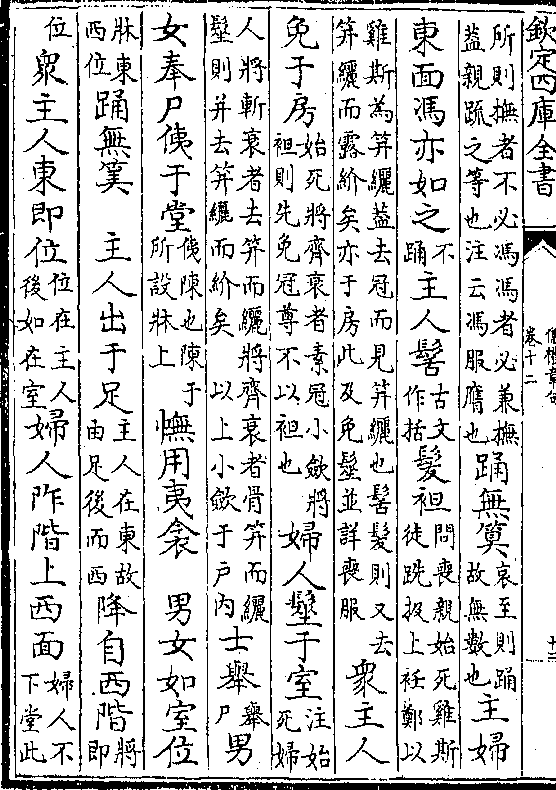 欽定四庫全書
儀禮章句
卷十二
十三
所則撫者不必馮馮者必兼撫
蓋親疏之等也注云馮服膺也踊無筭哀至則踊
故無數也主婦
東面馮亦如之不
踊主人髺古文
作括髮袒問喪親始死雞斯
徒跣扱上衽鄭以
雞斯為笄纚蓋去冠而見笄纚也髺髮則又去
笄纚而露紒矣亦于房此及免髽並詳喪服衆主人
免于房始死將齊衰者素冠小斂將
袒則先免冠尊不以袒也婦人髽于室注始
死婦
人將斬衰者去笄而纚將齊衰者骨笄而纚
髽則并去笄纚而紒矣 以上小斂于戶內士舉舉
尸男
女奉尸侇于堂侇陳也陳于
所設牀上幠用夷衾 男女如室位
牀東
西位踊無筭 主人出于足主人在東故
由足後而西降自西階將
即
位衆主人東即位位在主人
後如在室婦人阼階上西面婦人不
下堂此